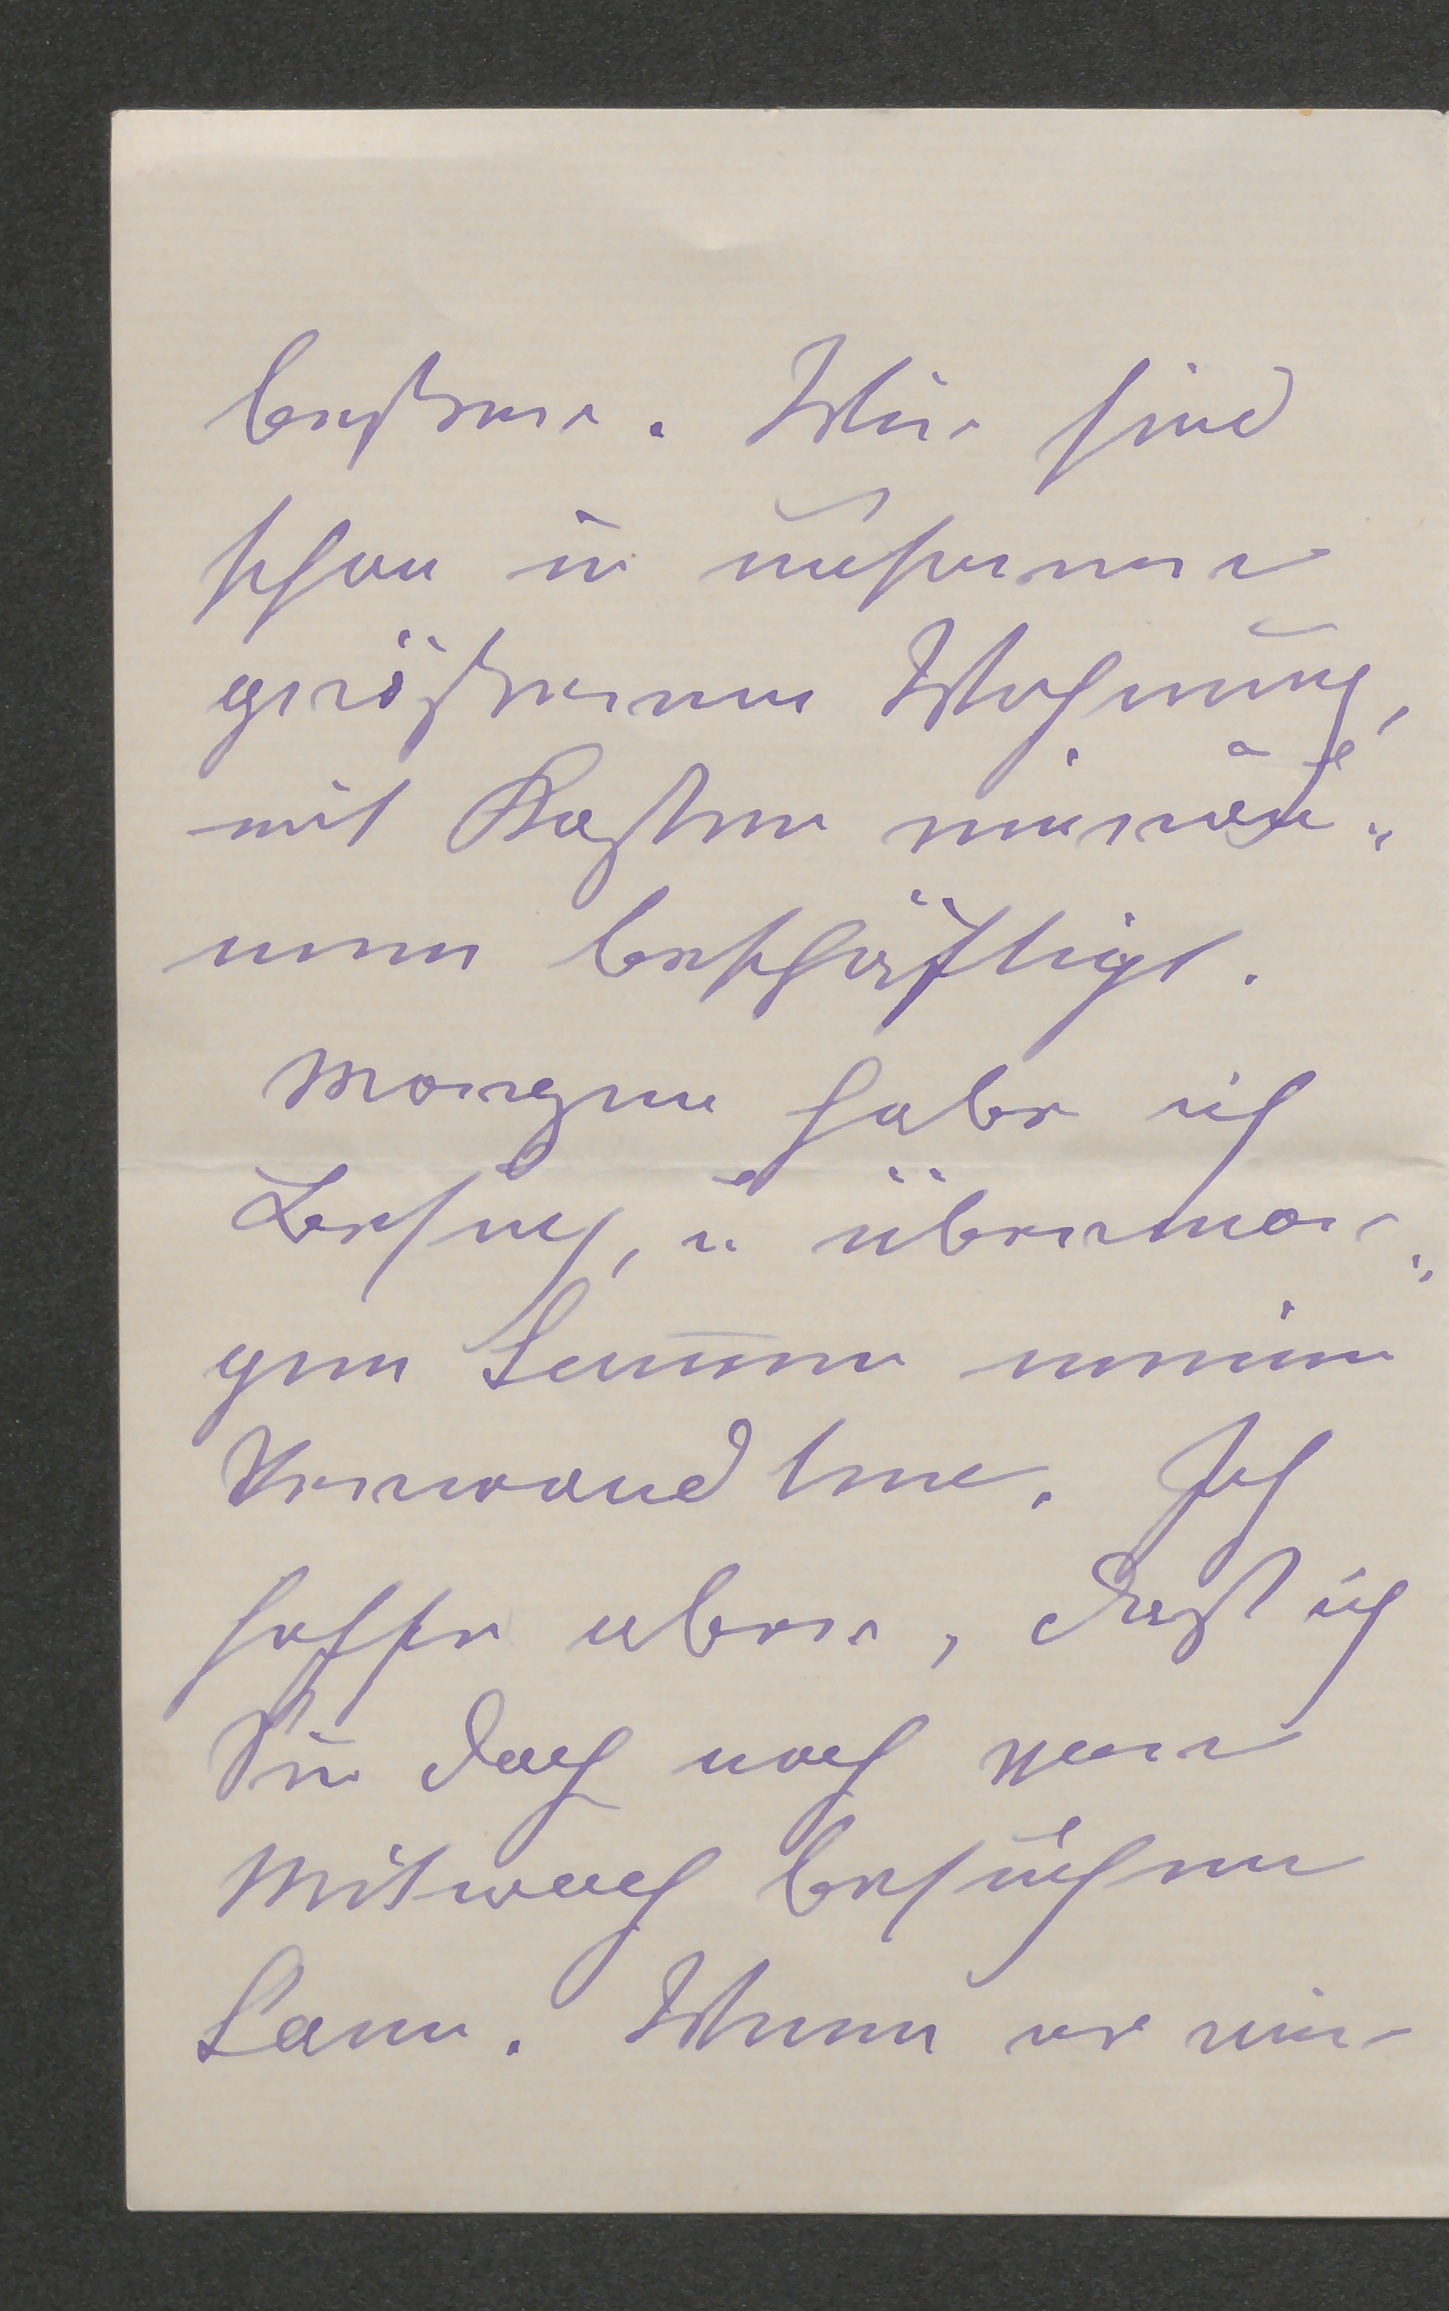 besser. Wir sind
schon in unserer
größeren Wohnung,
mit Kasten einräu-
men beschäftigt.
Morgen habe ich
Besuch, u. übermor-
gen kom̄en meine
Verwandten. Ich
hoffe aber, daß ich
Sie doch noch vor
Mitwoch besuchen
kann. Wenn es mir